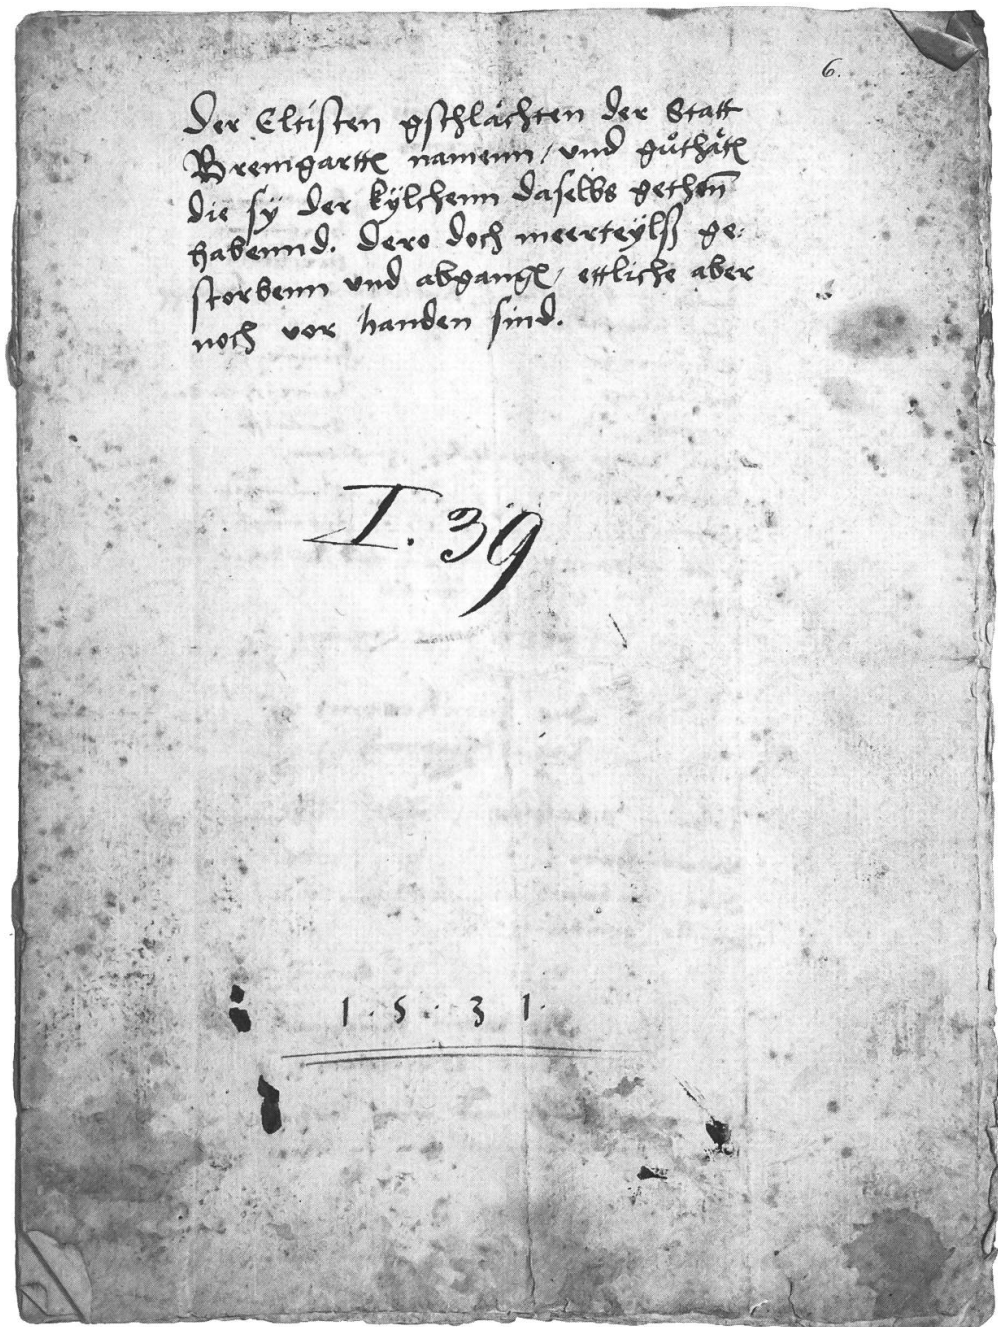 6.
Der Eltisten gschlächten der Statt
Bremgartten namenn / und gůthätẽ
die sÿ der kÿlchenn daselbs gethon̄
habennd. Dero doch meerteÿlß ge-
storbenn und abgangẽ / ettliche aber
noch vor handen sind.
I. 39
1. 5. 3 1.